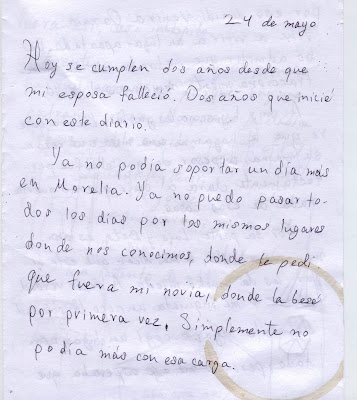 24 de mayo
Hoy se cumplen dos años desde que
mi esposa falleció. Dos años que inicié
con este diario.
Ya no podía soportar un día más
en Morelia. Ya no puedo pasar to-
dos los días por los mismos lugares
donde nos conocimos, donde le pedí
que fuera mi novia, donde la besé
por primera vez. Simplemente no
podía más con esa carga.